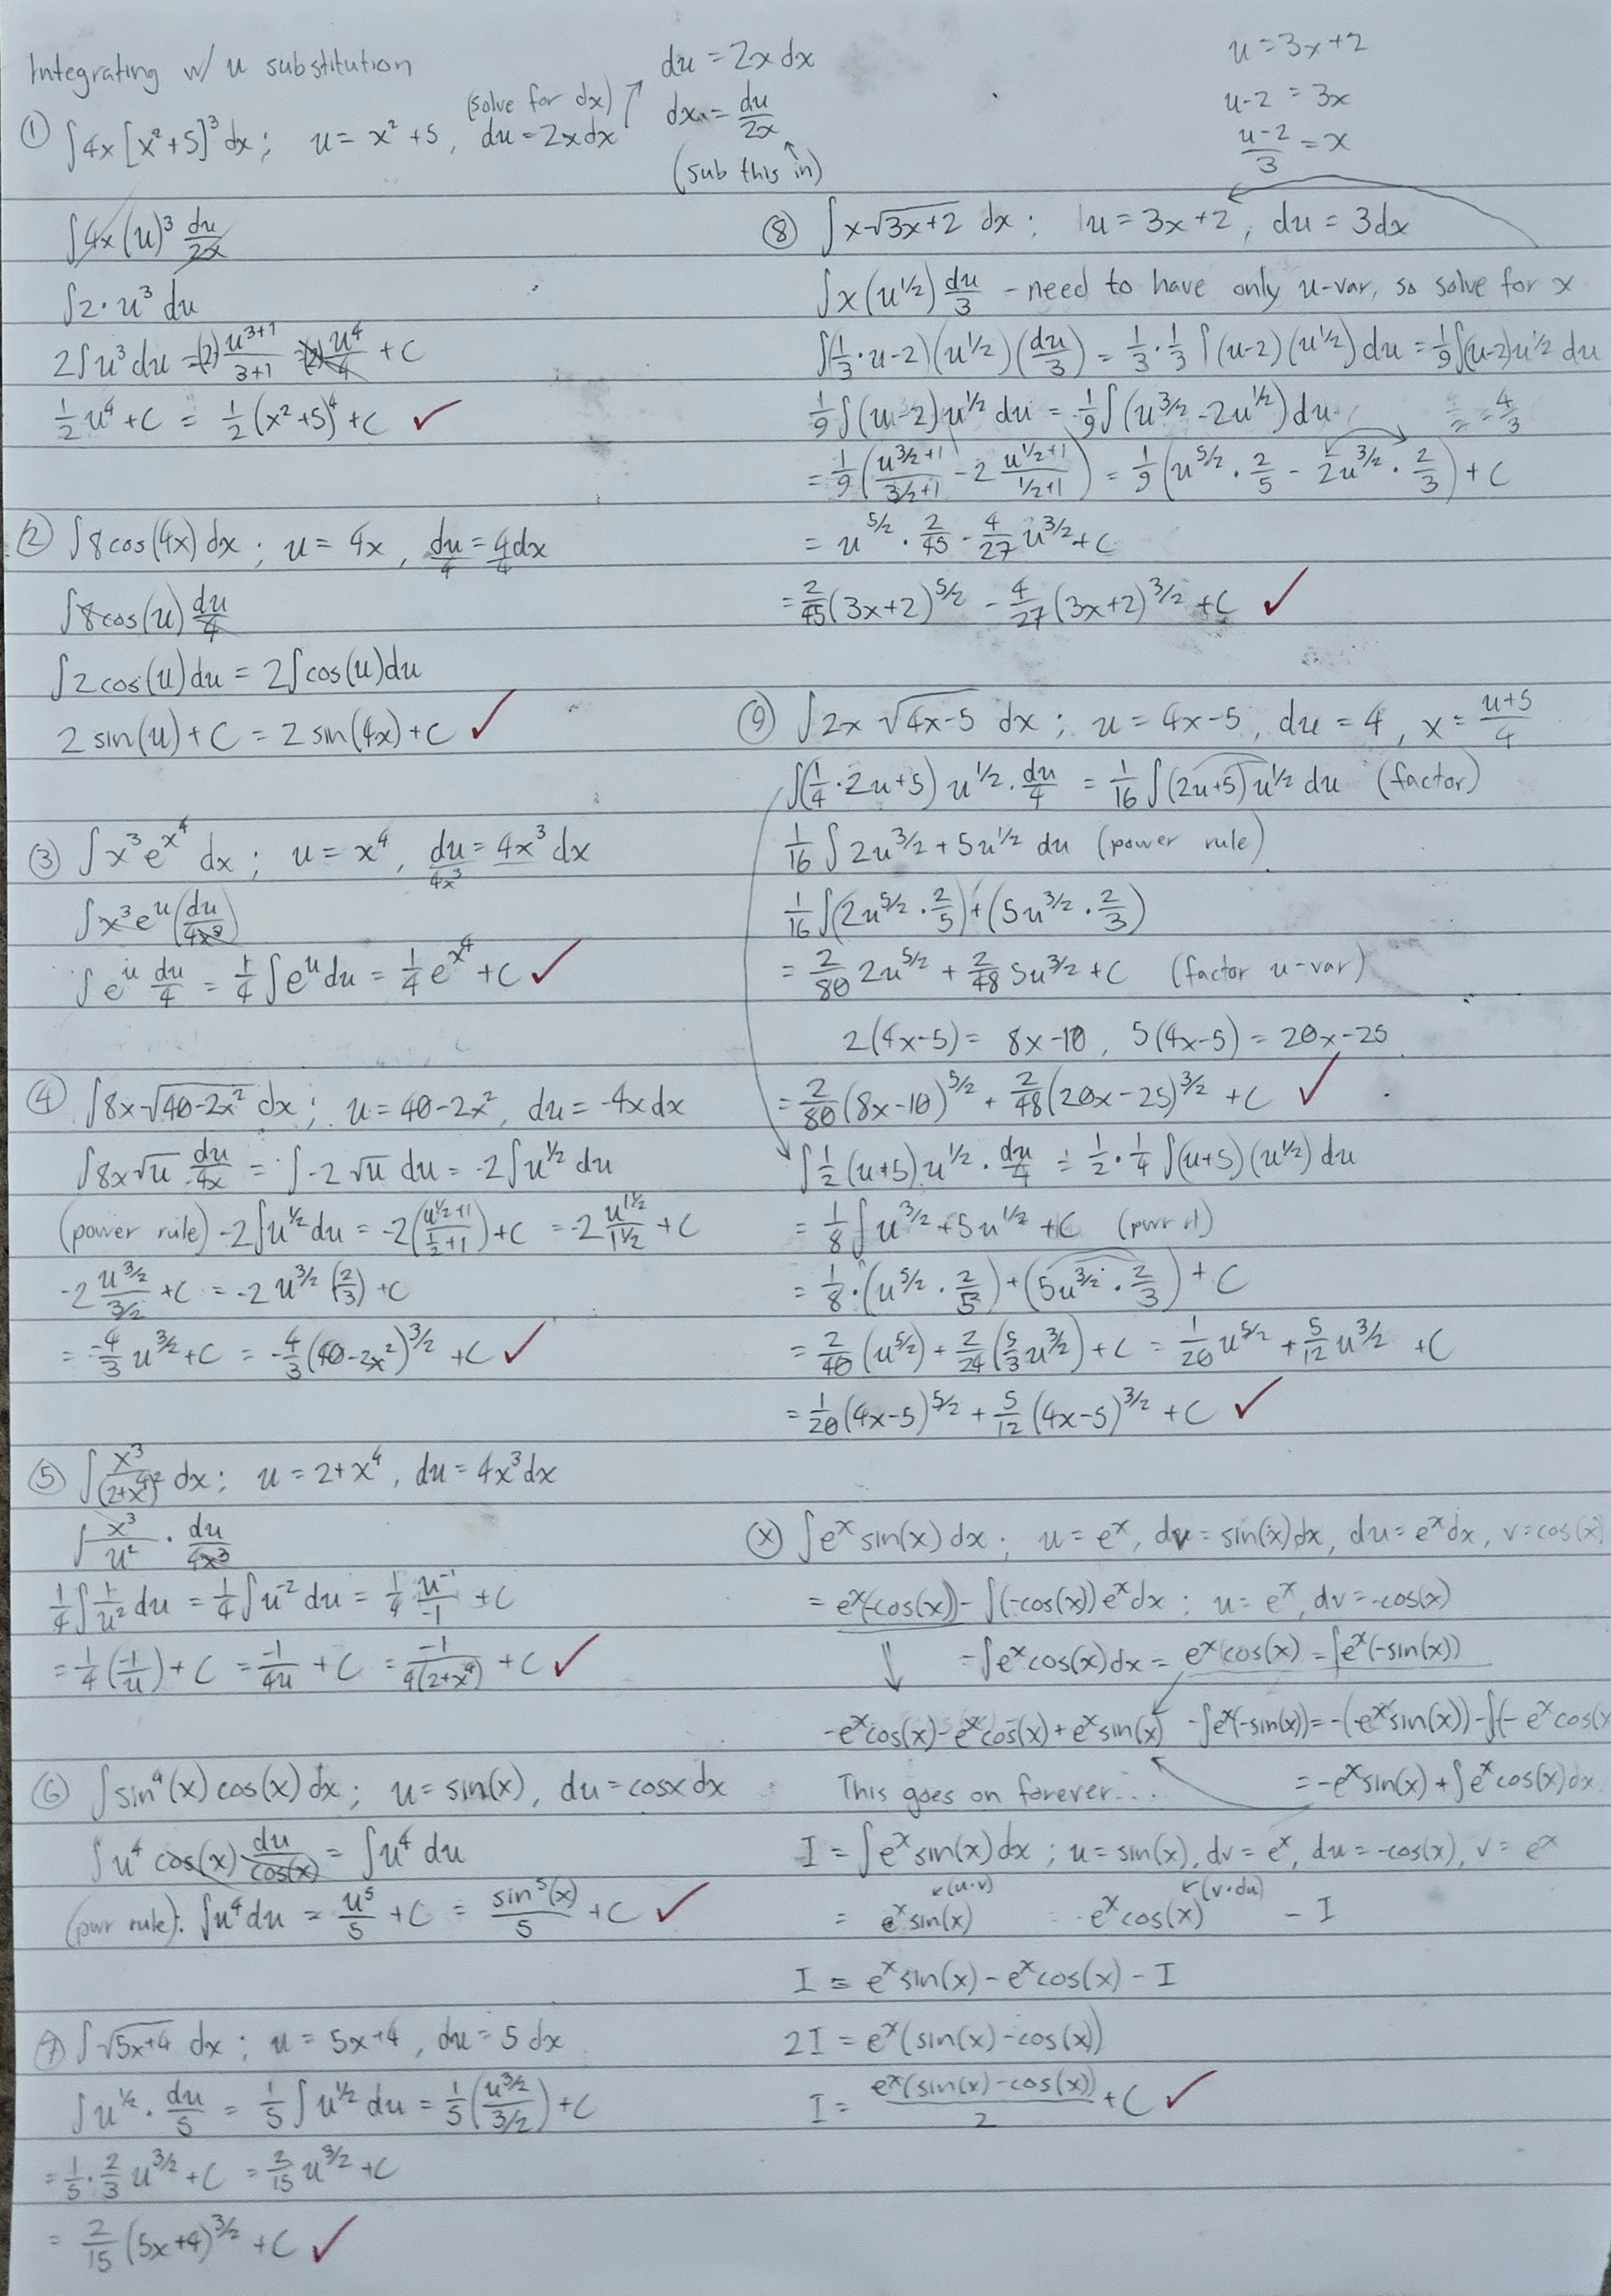 Integrating w/ u substitution
① ∫4x[x²+5]³dx; u = x²+5, du = 2xdx
(solve for dx)
du = 2x dx
dx = du/2x
(sub this in)
∫4x(u)³ du/2x
∫2·u³ du
2∫u³du = (2) u³⁺¹/3+1 = (2) u⁴/4 + C
1/2 u⁴ + C = 1/2 (x²+5)⁴ + C ✓
② ∫8cos(4x)dx; u = 4x, du/4 = 4/4 dx
∫8cos(u) du/4
∫2cos(u)du = 2∫cos(u)du
2 sin(u) + C = 2 sin(4x) + C ✓
③ ∫x³e^x⁴ dx; u = x⁴, du/4x³ = 4x³ dx
∫x³e^u (du/4x³)
∫e^u du/4 = 1/4 ∫e^u du = 1/4 e^x⁴ + C ✓
④ ∫8x√(40-2x²) dx; u = 40-2x², du = -4x dx
∫8x√u du/-4x = ∫-2√u du = -2∫u^1/2 du
(power rule) -2∫u^1/2 du = -2(u^1/2+1 / 1/2+1) + C = -2 u^1 1/2 / 1 1/2 + C
-2 u^3/2 / 3/2 + C = -2 u^3/2 (2/3) + C
= -4/3 u^3/2 + C = -4/3 (40-2x²)^3/2 + C ✓
⑤ ∫ x³/(2+x⁴)² dx; u = 2+x⁴, du = 4x³dx
∫ x³/u² · du/4x³
1/4 ∫ 1/u² du = 1/4 ∫u⁻² du = 1/4 u⁻¹/-1 + C
= 1/4 (-1/u) + C = -1/4u + C = -1/4(2+x⁴) + C ✓
⑥ ∫sin⁴(x) cos(x) dx; u = sin(x), du = cosx dx
∫u⁴ cos(x) du/cos(x) = ∫u⁴ du
(pwr rule): ∫u⁴ du = u⁵/5 + C = sin⁵(x)/5 + C ✓
⑦ ∫√(5x+4) dx; u = 5x+4, du = 5 dx
∫u^1/2 · du/5 = 1/5 ∫u^1/2 du = 1/5 (u^3/2 / 3/2) + C
= 1/5 · 2/3 u^3/2 + C = 2/15 u^3/2 + C
= 2/15 (5x+4)^3/2 + C ✓
u = 3x+2
u-2 = 3x
u-2/3 = x
⑧ ∫x√(3x+2) dx; u = 3x+2, du = 3dx
∫x(u^1/2) du/3 - need to have only u-var, so solve for x
∫(1/3 · u-2)(u^1/2)(du/3) = 1/3 · 1/3 ∫(u-2)(u^1/2)du = 1/9 ∫(u-2)u^1/2 du
1/9 ∫(u-2)u^1/2 du = 1/9 ∫(u^3/2 - 2u^1/2)du
= 4/3
= 1/9 (u^3/2+1 / 3/2+1 - 2 u^1/2+1 / 1/2+1) = 1/9 (u^5/2 · 2/5 - 2u^3/2 · 2/3) + C
= u^5/2 · 2/45 - 4/27 u^3/2 + C
= 2/45 (3x+2)^5/2 - 4/27 (3x+2)^3/2 + C ✓
⑨ ∫2x √(4x-5) dx; u = 4x-5, du = 4, x = u+5/4
∫(1/4 · 2u+5) u^1/2 · du/4 = 1/16 ∫(2u+5)u^1/2 du (factor)
1/16 ∫ 2u^3/2 + 5u^1/2 du (power rule)
1/16 ∫(2u^5/2 · 2/5) + (5u^3/2 · 2/3)
= 2/80 2u^5/2 + 2/48 5u^3/2 + C (factor u-var)
2(4x-5) = 8x-10, 5(4x-5) = 20x-25
= 2/80 (8x-10)^5/2 + 2/48 (20x-25)^3/2 + C ✓
∫1/2 (u+5) u^1/2 · du/4 = 1/2 · 1/4 ∫(u+5)(u^1/2) du
= 1/8 ∫ u^3/2 + 5u^1/2 + C (pwr rl)
= 1/8 · (u^5/2 · 2/5) + (5u^3/2 · 2/3) + C
= 2/40 (u^5/2) + 2/24 (5/3 u^3/2) + C = 1/20 u^5/2 + 5/12 u^3/2 + C
= 1/20 (4x-5)^5/2 + 5/12 (4x-5)^3/2 + C ✓
ⓧ ∫e^x sin(x) dx; u = e^x, dv = sin(x)dx, du = e^x dx, v = cos(x)
= e^x(-cos(x)) - ∫(-cos(x))e^x dx; u = e^x, dv = -cos(x)
-∫e^x cos(x)dx = e^x cos(x) = ∫e^x(-sin(x))
-e^x cos(x) - e^x cos(x) + e^x sin(x) -∫e^x(-sin(x)) = -(-e^x sin(x)) - ∫(-e^x cos(x
This goes on forever... = -e^x sin(x) + ∫e^x cos(x)dx
I = ∫e^x sin(x)dx; u = sin(x), dv = e^x, du = -cos(x), v = e^x
(u·v) (v·du)
= e^x sin(x) - e^x cos(x) - I
I = e^x sin(x) - e^x cos(x) - I
2I = e^x(sin(x) - cos(x))
I = e^x(sin(x) - cos(x))/2 + C ✓